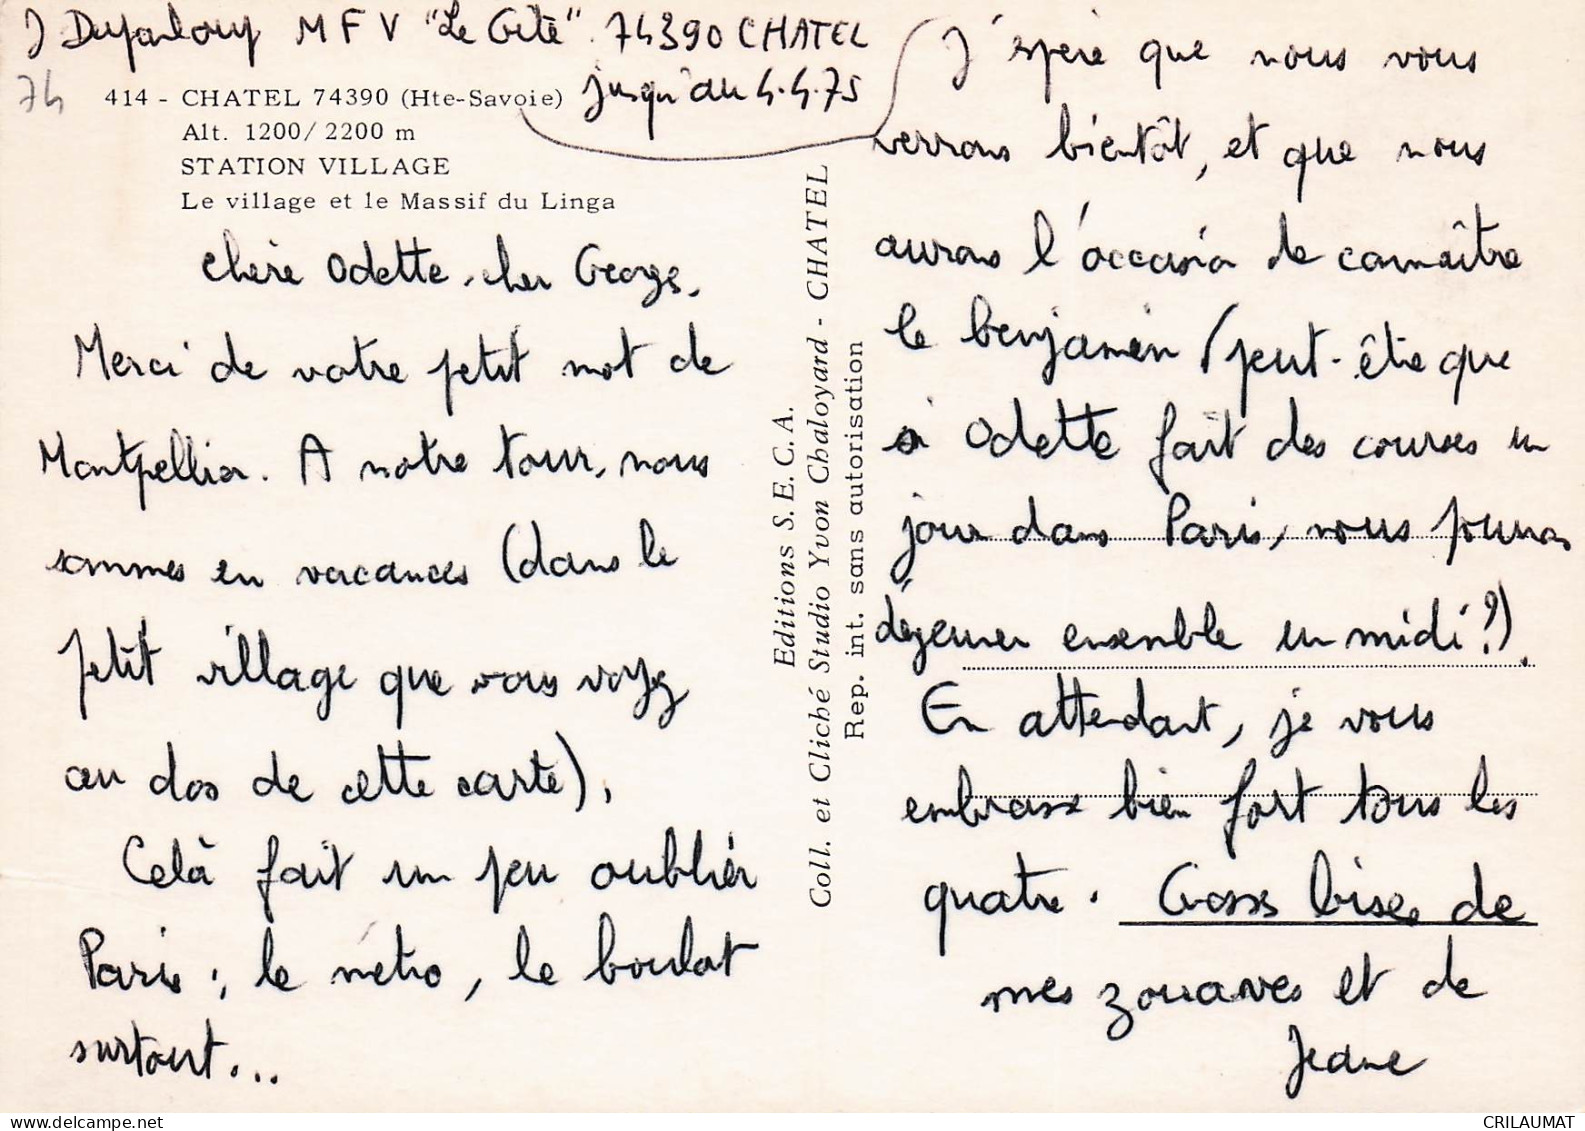 J Dupanloup MFV "Le Gîte". 74390 CHATEL
jusqu'au 4.4.75
74
414 - CHATEL 74390 (Hte-Savoie)
Alt. 1200/2200 m
STATION VILLAGE
Le village et le Massif du Linga
Chère Odette, cher George,
Merci de votre petit mot de
Montpellier. A notre tour, nous
sommes en vacances (dans le
petit village que vous voyez
au dos de cette carte).
Celà fait un peu oublier
Paris ; le métro, le boulot
surtout...
Editions S.E.C.A.
Coll. et Cliché Studio Yvon Chaloyard - CHATEL
Rep. int. sans autorisation
J'espère que nous vous
verrons bientôt, et que nous
aurons l'occasion de connaître
le benjamin (peut-être que
si Odette fait des courses un
jour dans Paris, nous pourrons
déjeuner ensemble un midi ?).
En attendant, je vous
embrasse bien fort tous les
quatre. Grosses bises de
mes zouaves et de
Jeanne
CRILAUMAT